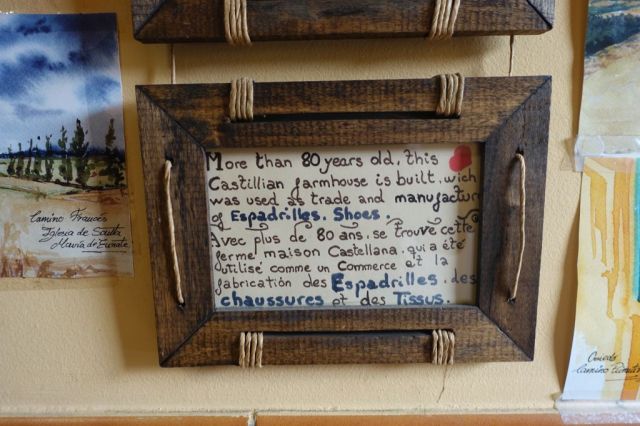 More than 80 years old, this
Castillian farmhouse is built, wich
was used as trade and manufactury
of Espadrilles, Shoes.
Avec plus de 80 ans, se trouve cette
ferme maison Castellana, qui a été
utilisé comme un Commerce et la
fabrication des Espadrilles, des
chaussures et des Tissus.
Camino Francés
Iglesia de Santa
María de Eunate
Oviedo
Camino Primitivo